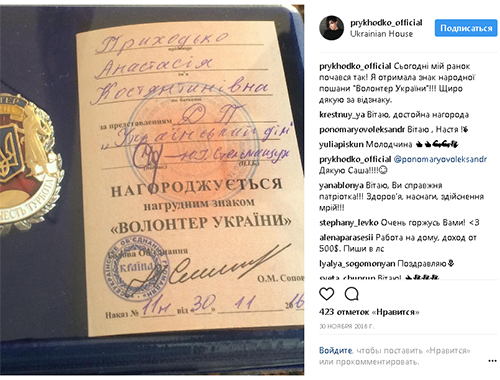 Приходько
Анастасія
Костянтинівна
за представленням Д П
"Український дім"
НАГОРОДЖУЄТЬСЯ
нагрудним знаком
«ВОЛОНТЕР УКРАЇНИ»
Голова Об'єднання
КРАЇНА
О.М. Сопов
Наказ № 11н від 30 11 2016
ЧЕСТЬ
prykhodko_official
Ukrainian House
Подписаться
prykhodko_official Сьогодні мій ранок
почався так! Я отримала знак народної
пошани "Волонтер України"!!! Щиро
дякую за відзнаку.
krestnuy_ya Вітаю, достойна нагорода
ponomaryovoleksandr Вітаю , Настя
yuliapiskun Молодчина
prykhodko_official @ponomaryovoleksandr
Дякую Саша!!!!
yanablonya Вітаю, Ви справжня
патріотка!!! Здоров'я, наснаги, здійснення
мрій!!!
stephany_levko Очень горжусь Вами! <3
alenaparasesii Работа на дому, доход от
500$. Пиши в лс
lyalya_sogomonyan Поздравляю
sveta_chuprun Вітаю!
423 отметок «Нравится»
30 НОЯБРЯ 2016 Г.
Войдите, чтобы поставить «Нравится»
или прокомментировать.